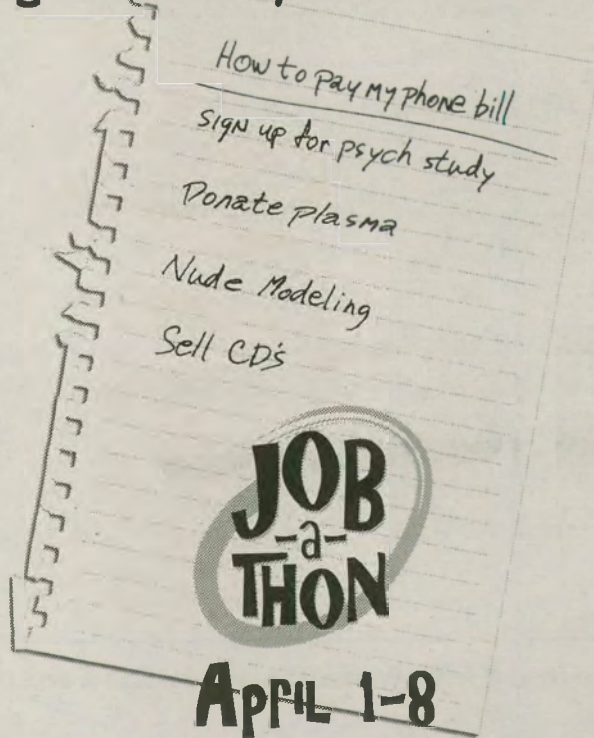 How to pay my phone bill
sign up for psych study
Donate plasma
Nude Modeling
Sell CD's
JOB
-a-
THON
APRIL 1-8